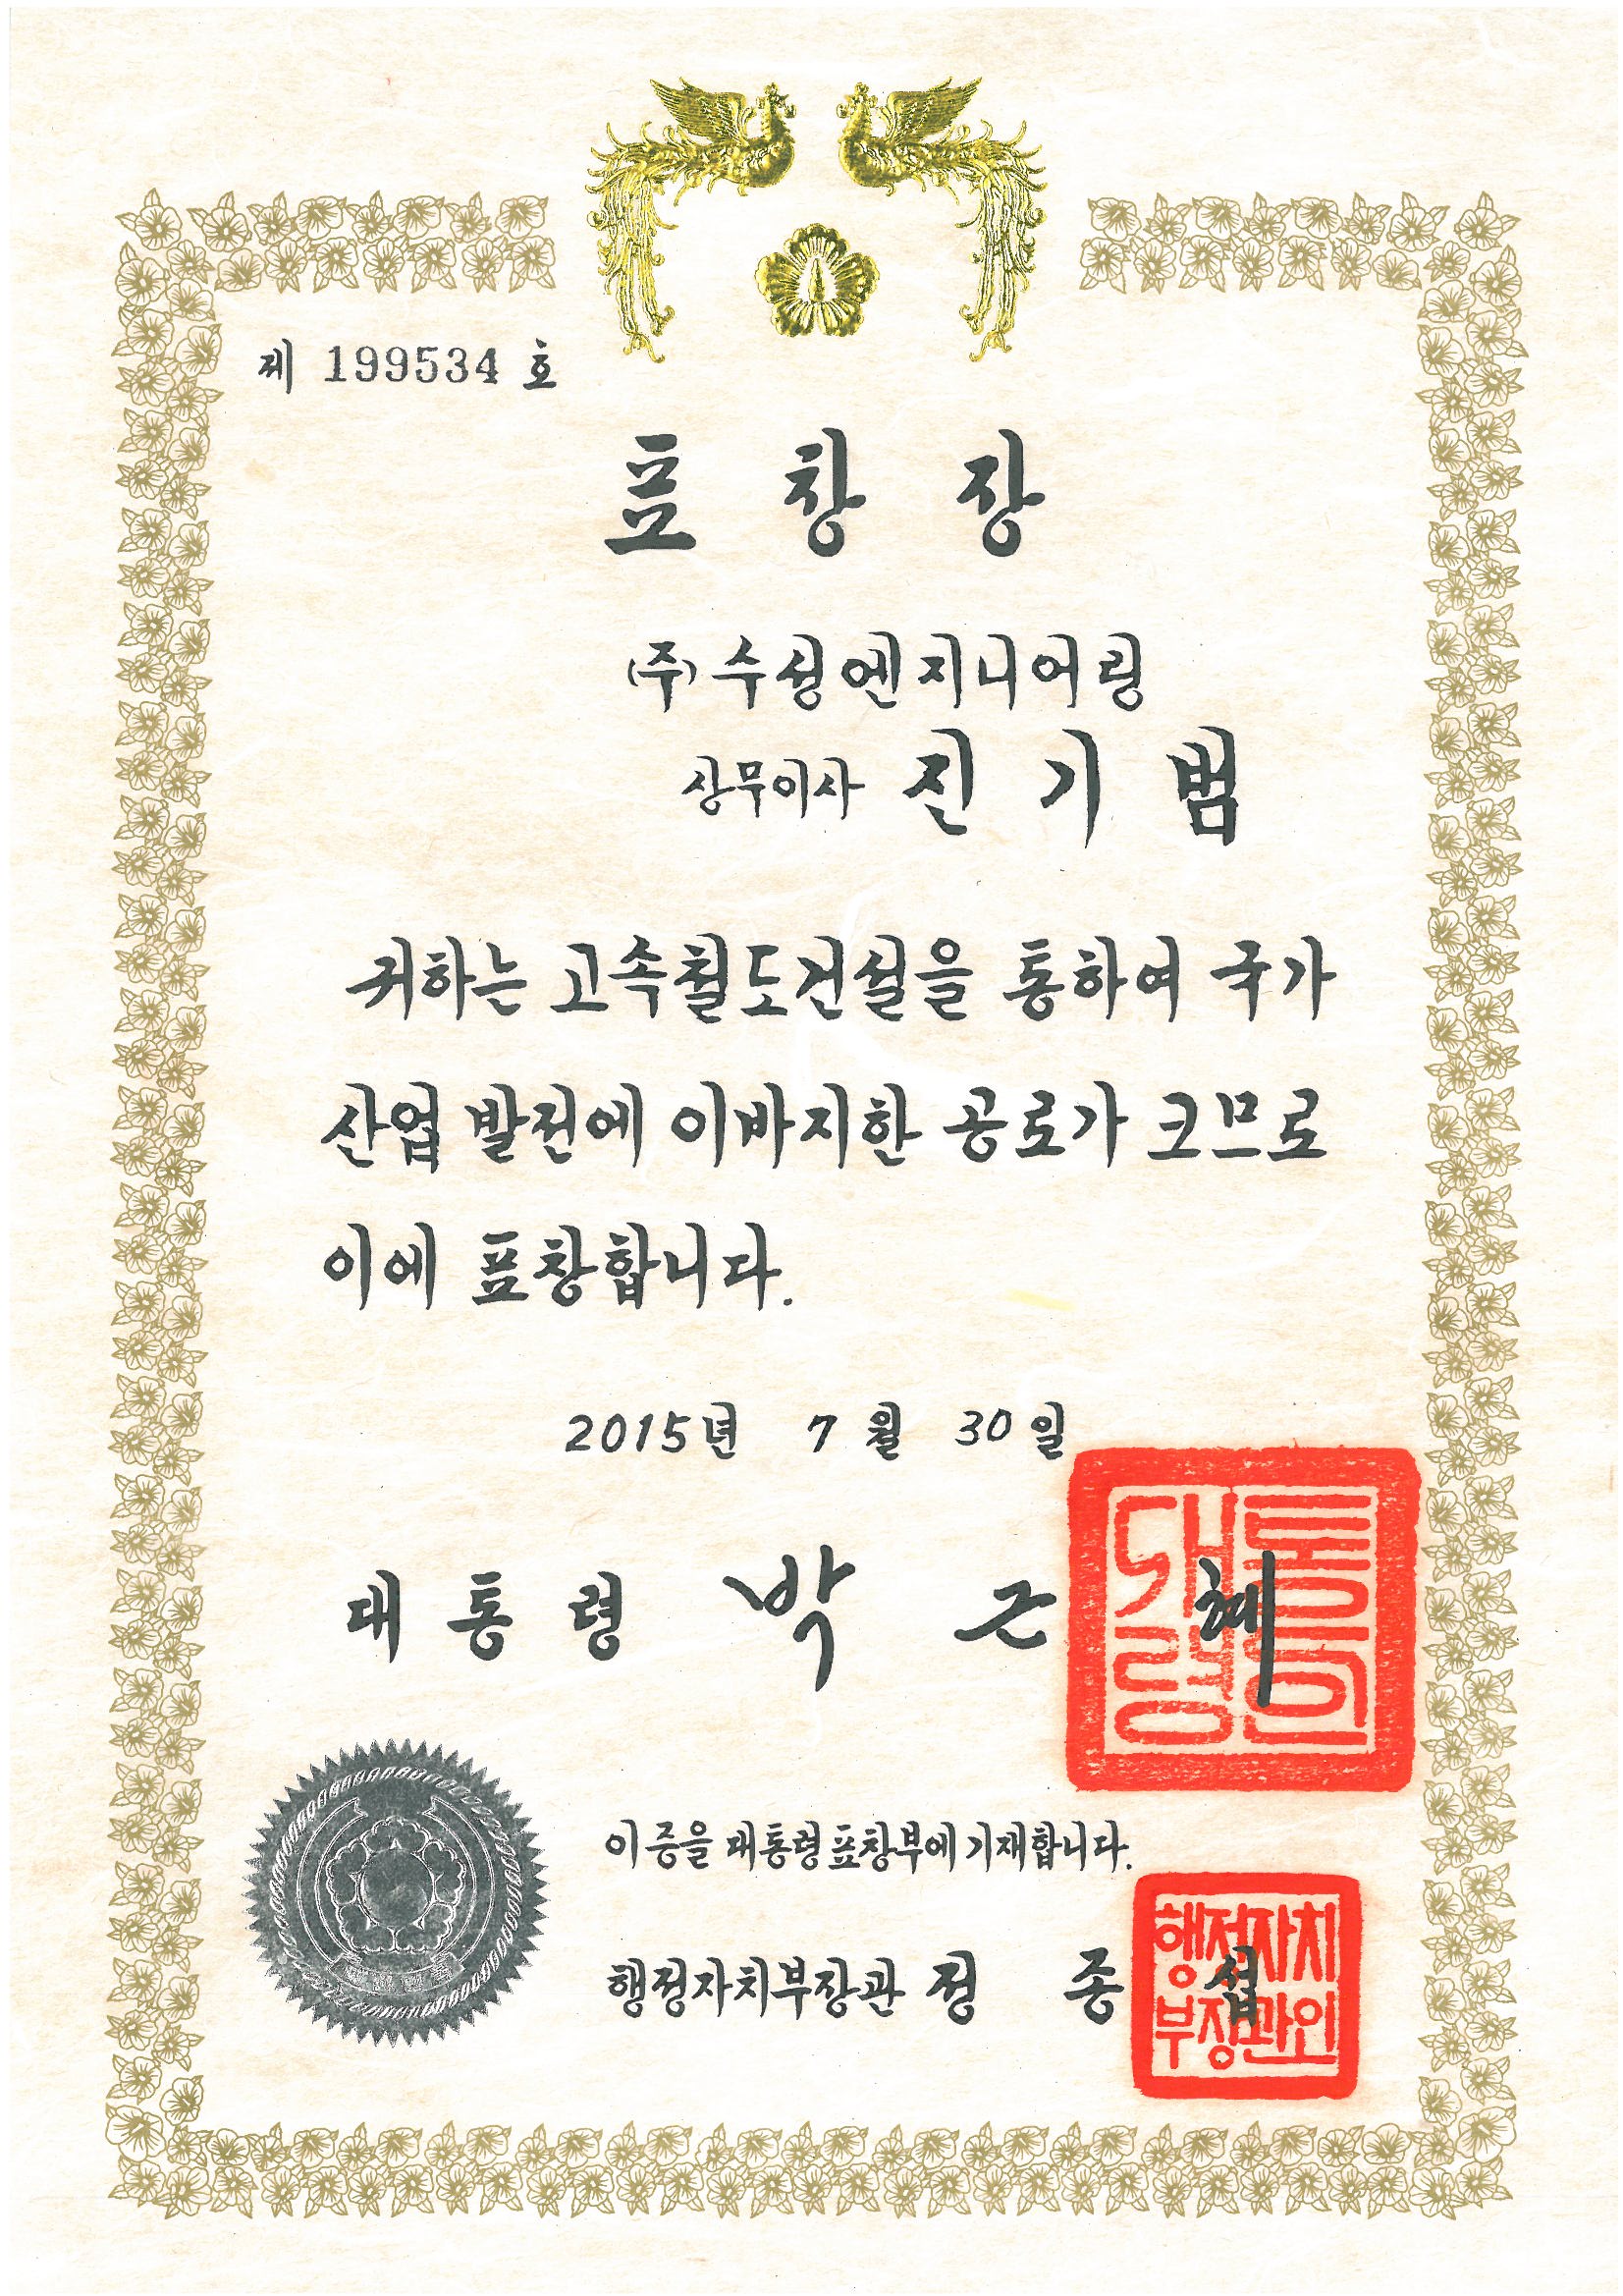 제 199534 호
표 창 장
(주)수성엔지니어링
상무이사 진 기 범
귀하는 고속철도건설을 통하여 국가
산업 발전에 이바지한 공로가 크므로
이에 표창합니다.
2015년 7월 30일
대 통 령 박 근 혜
대통
령인
이 증을 대통령표창부에 기재합니다.
행정자치부장관 정 종 섭
행정자치
부장관인